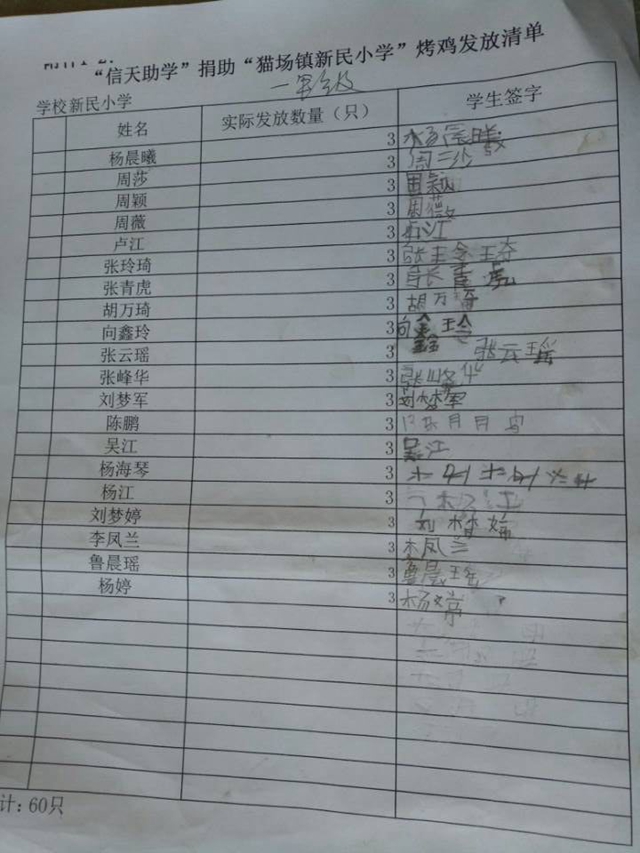 “信天助学”捐助“猫场镇新民小学”烤鸡发放清单
一年级
学校新民小学
姓名 实际发放数量（只） 学生签字
杨晨曦 3 杨晨曦
周莎 3 周莎
周颖 3 周颖
周薇 3 周薇
卢江 3 卢江
张玲琦 3 张玲琦
张青虎 3 张青虎
胡万琦 3 胡万琦
向鑫玲 3 向鑫玲
张云瑶 3 张云瑶
张峰华 3 张峰华
刘梦军 3 刘梦军
陈鹏 3 陈鹏
吴江 3 吴江
杨海琴 3
杨江 3 杨江
刘梦婷 3 刘梦婷
李凤兰 3 李凤兰
鲁晨瑶 3 鲁晨瑶
杨婷 3 杨婷
计：60只